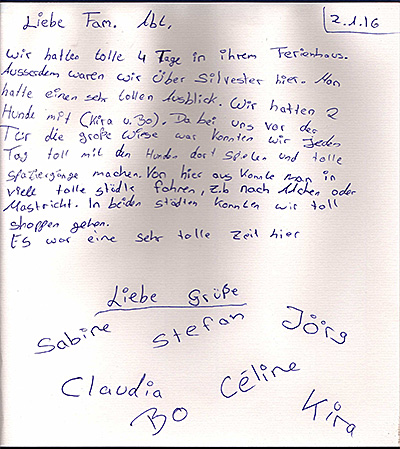 Liebe Fam. Abt,
2.1.16
Wir hatten tolle 4 Tage in ihrem Ferienhaus.
Ausserdem waren wir über Silvester hier. Man
hatte einen sehr tollen Ausblick. Wir hatten 2
Hunde mit (Kira u. Bo). Da bei uns vor der
Tür die große Wiese war konnten wir jeden
Tag toll mit den Hunden dort spielen und tolle
spatziergänge machen. Von hier aus konnte man in
viele tolle städte fahren, z.b nach Achen oder
Mastricht. In beiden städten konnten wir toll
shoppen gehen.
Es war eine sehr tolle Zeit hier
Liebe Grüße
Sabine Stefan Jörg
Claudia Céline
Bo Kira